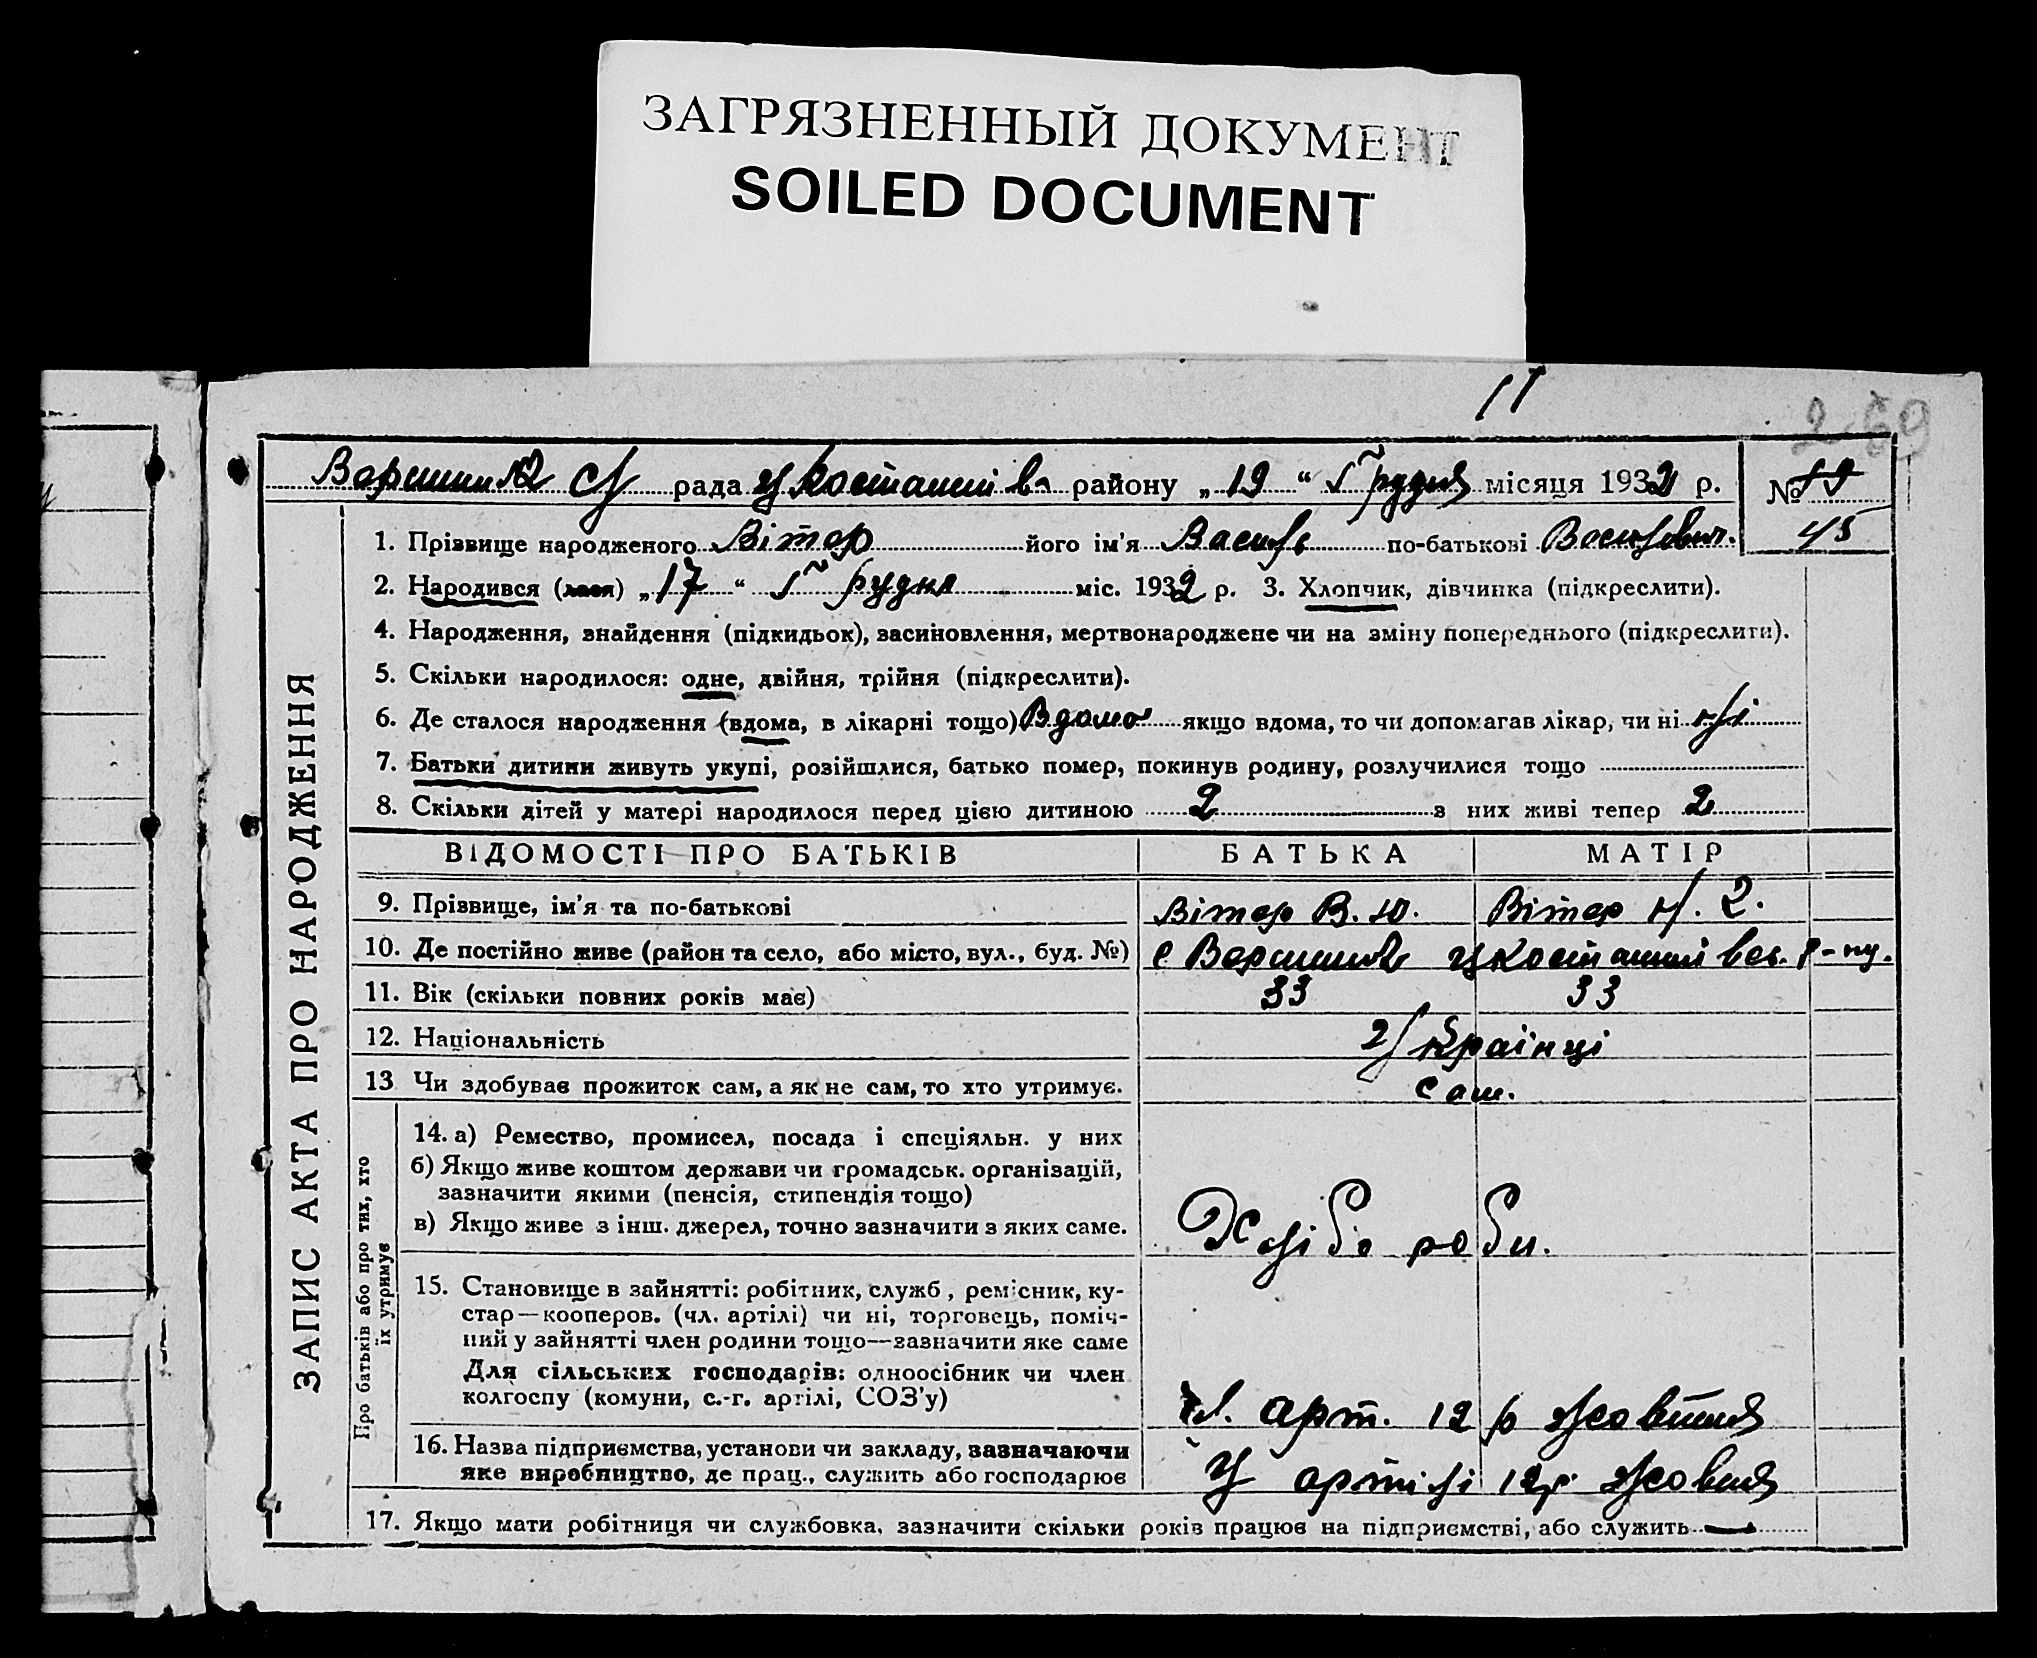 ЗАГРЯЗНЕННЫЙ ДОКУМЕНТ
SOILED DOCUMENT
11
рада району „19“ Грудня місяця 1932 р. №
45
1. Прізвище народженого Вітер його ім'я Василь по-батькові Васильович.
2. Народився (лася) „17“ Грудня міс. 1932 р. 3. Хлопчик, дівчинка (підкреслити).
4. Народження, знайдення (підкидьок), засиновлення, мертвонароджене чи на зміну попереднього (підкреслити).
5. Скільки народилося: одне, двійня, трійня (підкреслити).
6. Де сталося народження (вдома, в лікарні тощо) Вдома якщо вдома, то чи допомагав лікар, чи ні ні
7. Батьки дитини живуть укупі, розійшлися, батько помер, покинув родину, розлучилися тощо
8. Скільки дітей у матері народилося перед цією дитиною 2 з них живі тепер 2
ВІДОМОСТІ ПРО БАТЬКІВ БАТЬКА МАТІР
9. Прізвище, ім'я та по-батькові Вітер В. Ю. Вітер
10. Де постійно живе (район та село, або місто, вул., буд. №) с
11. Вік (скільки повних років має) 33 33
12. Національність Українці
13 Чи здобуває прожиток сам, а як не сам, то хто утримує. сам.
14. а) Ремество, промисел, посада і спеціяльн. у них
б) Якщо живе коштом держави чи громадськ. організацій,
зазначити якими (пенсія, стипендія тощо)
в) Якщо живе з інш. джерел, точно зазначити з яких саме. Хліборобн.
15. Становище в зайнятті: робітник, служб, ремісник, ку-
стар—кооперов. (чл. артілі) чи ні, торговець, поміч-
ний у зайнятті член родини тощо—зазначити яке саме
Для сільських господарів: одноосібник чи член
колгоспу (комуни, с.-г. артілі, СОЗ'у) чл. арт. 12 р Жовтня
16. Назва підприємства, установи чи закладу, зазначаючи
яке виробництво, де прац., служить або господарює У артілі 12р. Жовтня
17. Якщо мати робітниця чи службовка, зазначити скільки років працює на підприємстві, або служить —
ЗАПИС АКТА ПРО НАРОДЖЕННЯ
Про батьків або про тих, хто
їх утримує